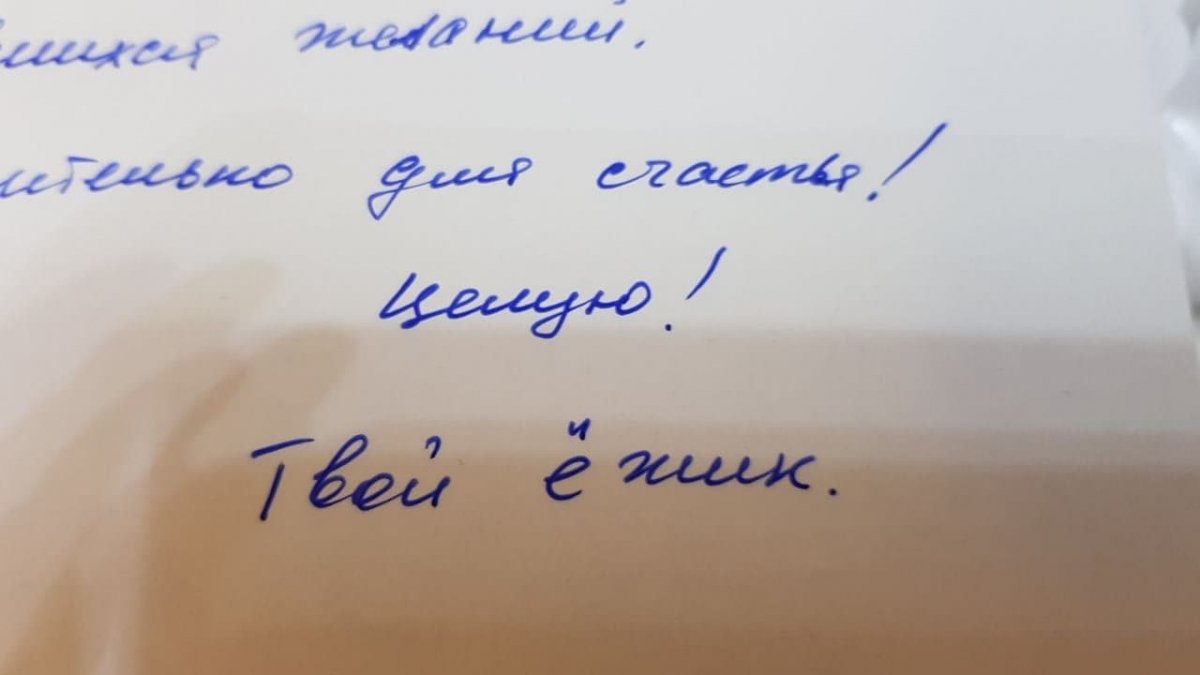 вшихся желаний.
ительно для счастья!
Целую!
Твой ёжик.